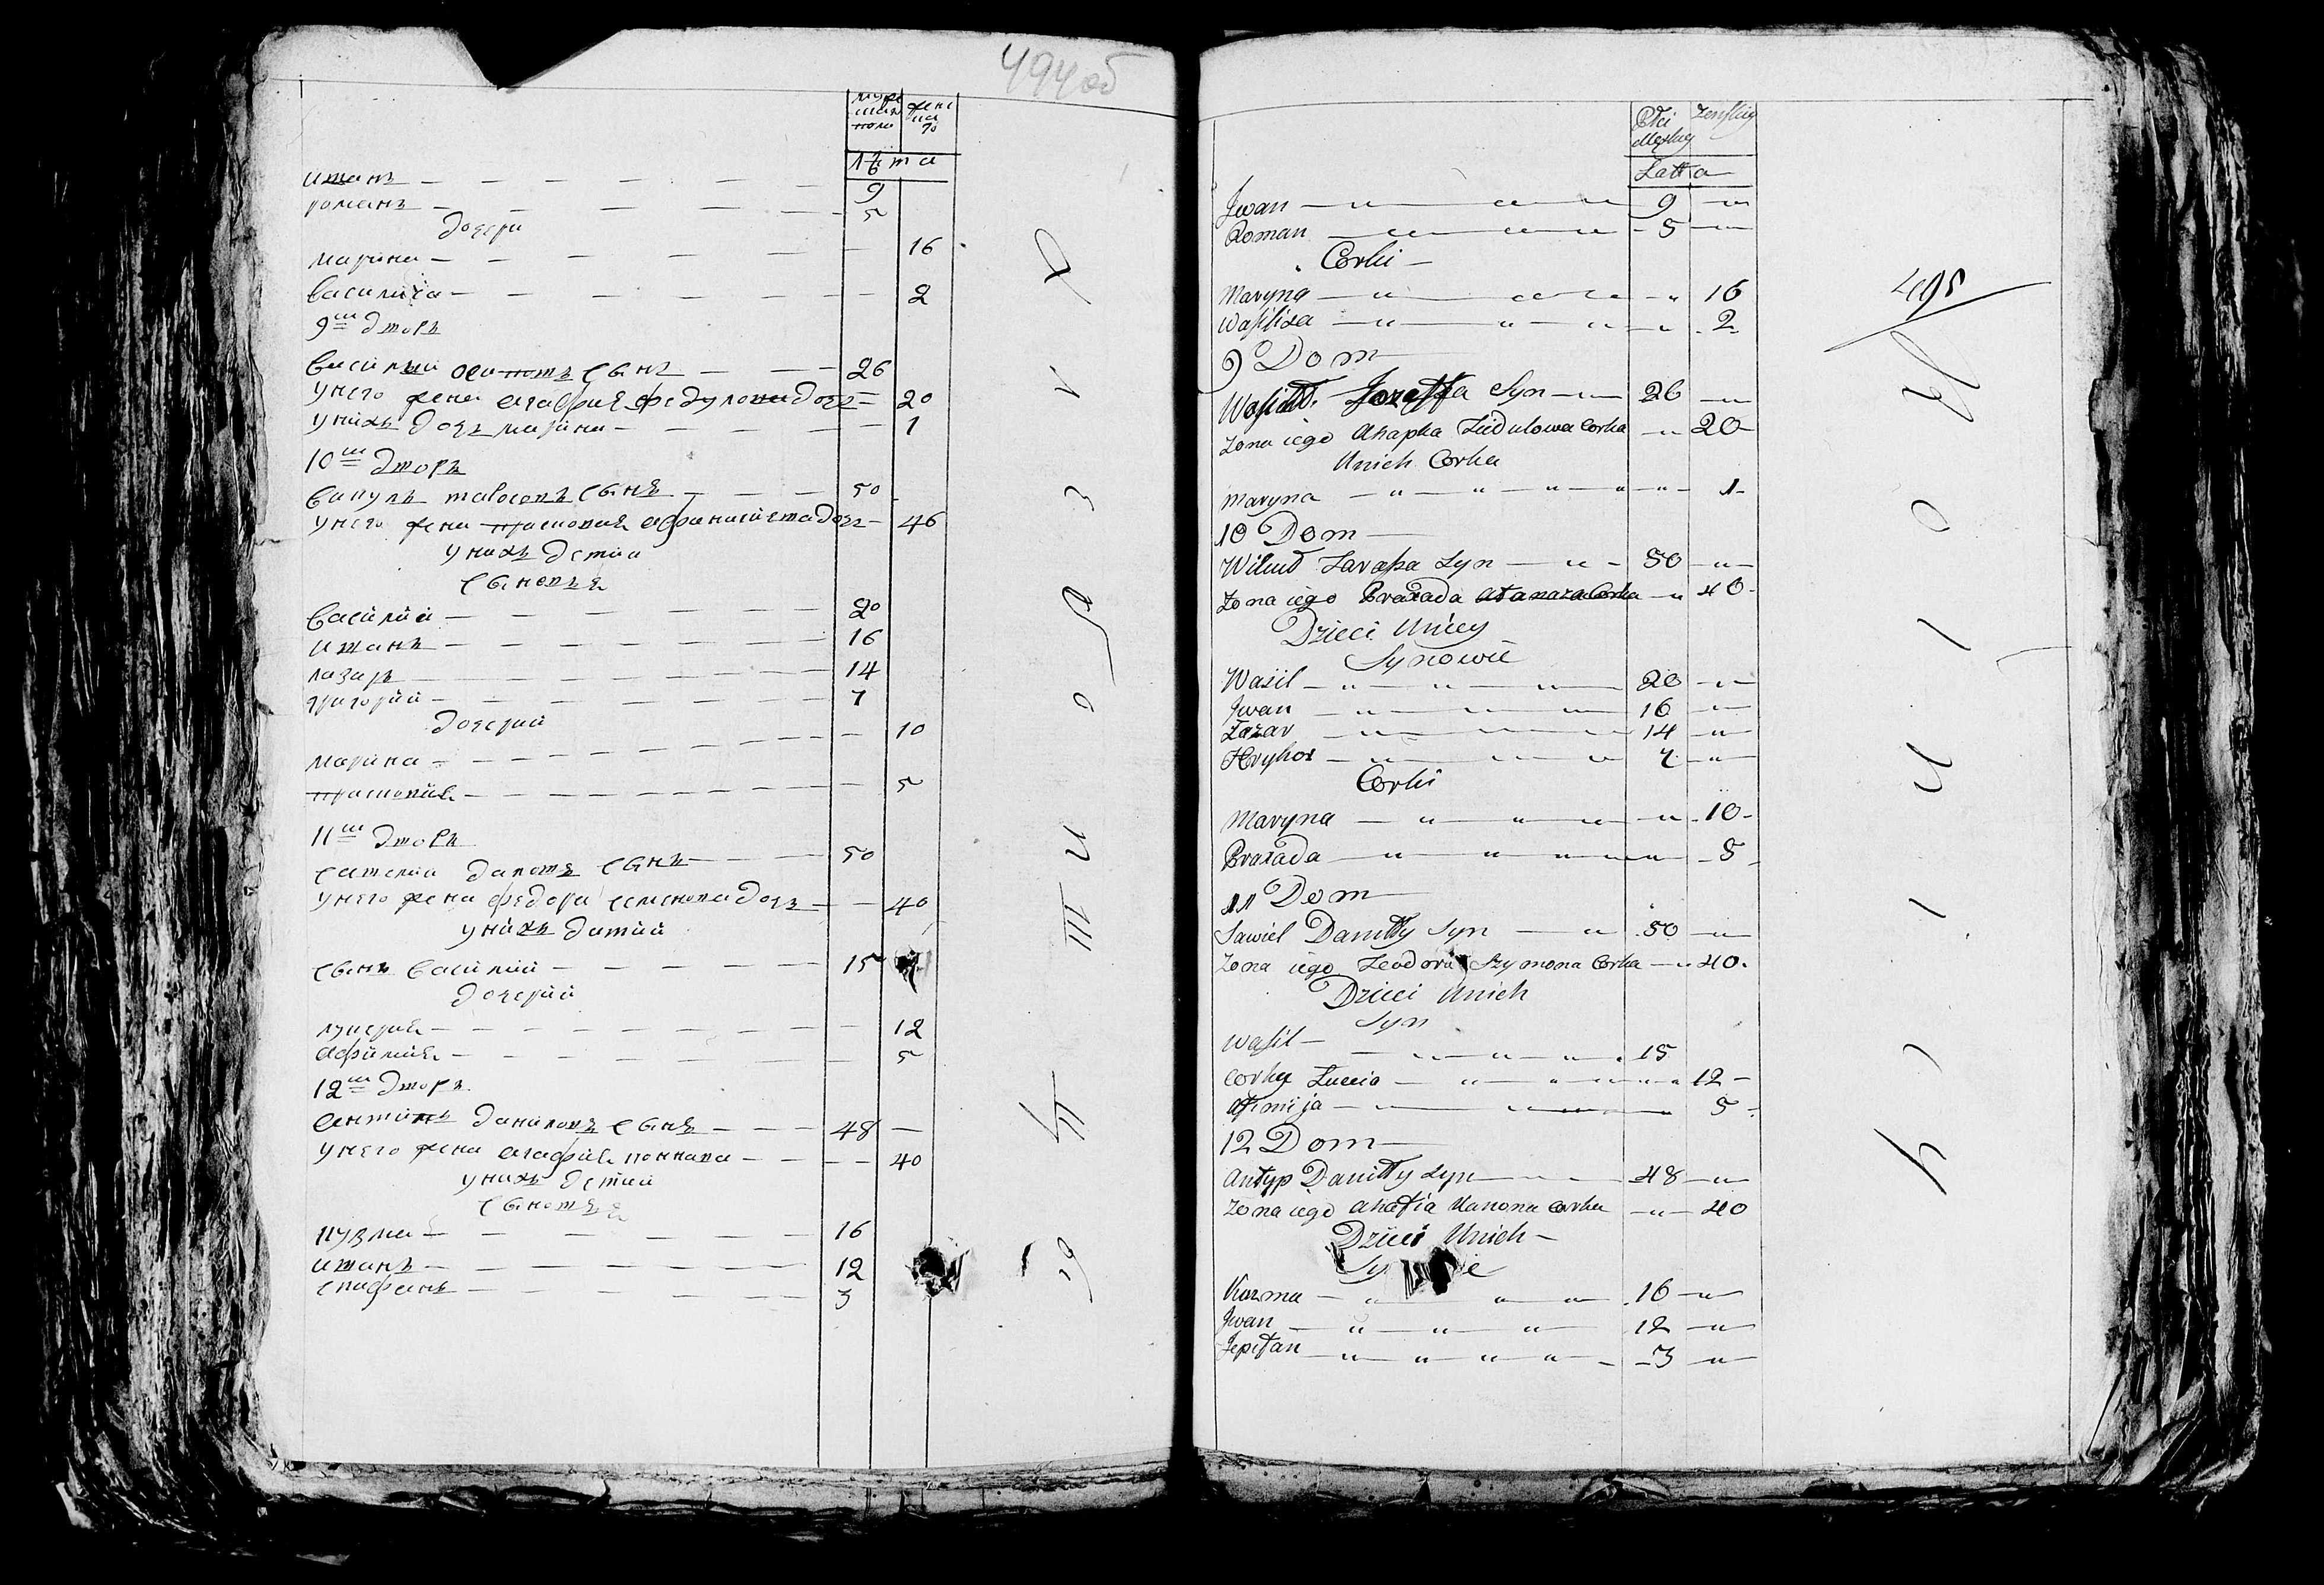 494 об
мужеска пола
женска го
лѣта
иванъ 9
романъ 5
дочери
марина 16
василиса 2
9й дворъ
василий осиповъ сынъ 26
у него жена агафия федулова дочь 20
у нихъ дочь марина 1
10й дворъ
50
у него жена прасковия афанасиева дочь 46
у нихъ детии
сыновья
василий 20
иванъ 16
лазарь 14
григорий 7
дочерии
марина 10
прасковия 5
11й дворъ
савелий сынъ 50
у него жена федора семенова дочь 40
у нихъ дитии
сынъ василий 15
дочерии
лукерия 12
афимия 5
12й дворъ
антипъ даниловъ сынъ 48
у него жена агафия конкова 40
у нихъ детии
сыновья
кузма 16
иванъ 12
епифанъ 3
Płci Męskiey
żenskiey
Latta
495
Jwan 9
Roman 5
Corki
Maryna 16
Wasilisa 2
9 Dom
Wasill Jozeffa Syn 26
Zona iego Ahapka Fiedulowa Corka 20
Unich Corka
Maryna 1
10 Dom
Syn 50
Zona iego Praxada Atanaza Corka 46
Dzieci Unicy
Synowie
Wasil 20
Jwan 16
Łazar 14
Hryhor 7
Corki
Maryna 10
Praxada 5
11 Dom
Sawiel Daniłły Syn 50
Zona iego Teodora Szymona Corka 40
Dzieci Unich
Syn
Wasil 15
Corky Luceia 12
Afimija 5
12 Dom
Antyp Daniłły Syn 48
Zona iego Ahafia Kanona Corka 40
Dzieci Unich
Kuzma 16
Jwan 12
Jepifan 3